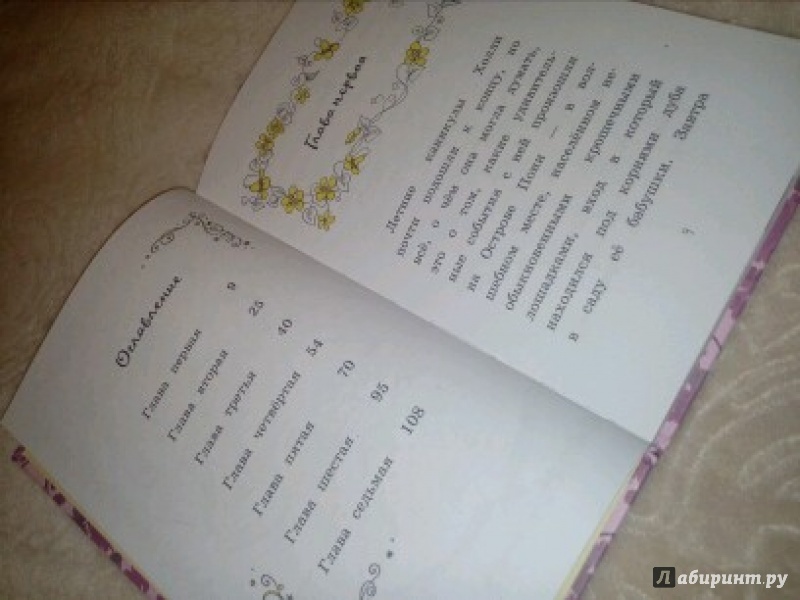 Оглавление
Глава первая 9
Глава вторая 25
Глава третья 40
Глава четвёртая 54
Глава пятая 70
Глава шестая 95
Глава седьмая 108
Глава первая
Летние каникулы Холли
почти подошли к концу, но
всё, о чём она могла думать,
это о том, какие удивитель-
ные события с ней произошли
на Острове Пони — в вол-
шебном месте, населённом не-
обыкновенными крошечными
лошадками, вход в который
находился под корнями дуба
в саду её бабушки. Завтра
Лабиринт.ру